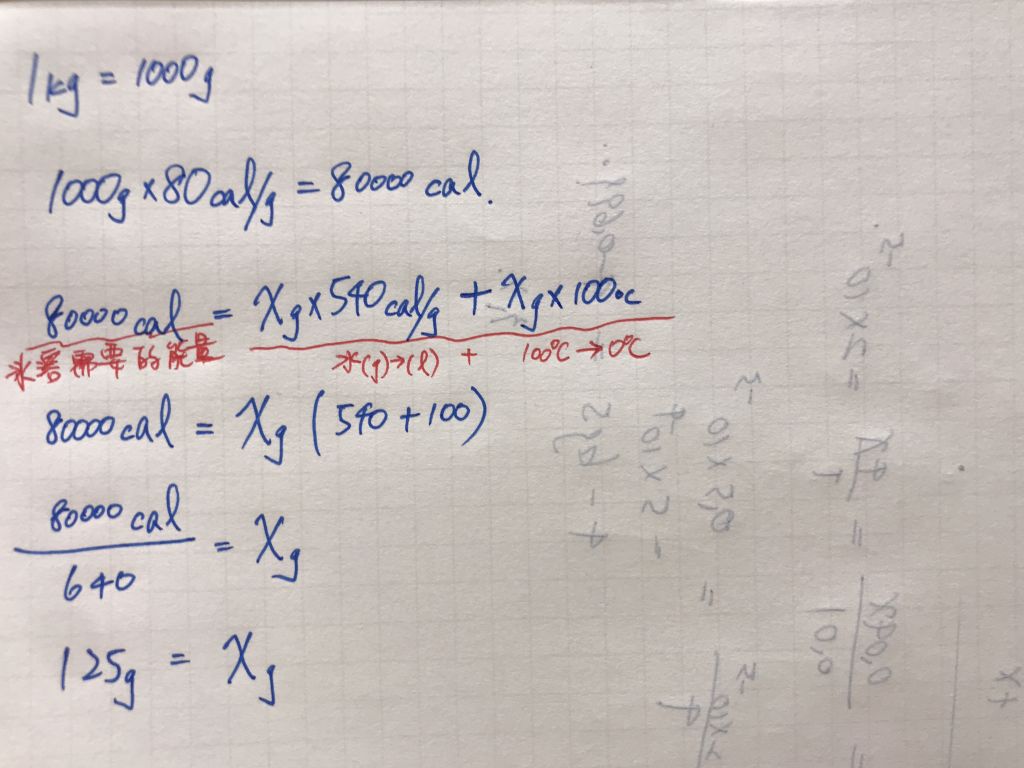 1kg = 1000g
1000g × 80cal/g = 80000 cal.
80000 cal = Xg × 540cal/g + Xg × 100°C
氷需要的能量 水(g)→(l) + 100°C → 0°C
80000 cal = Xg (540 + 100)
80000 cal / 640 = Xg
125g = Xg